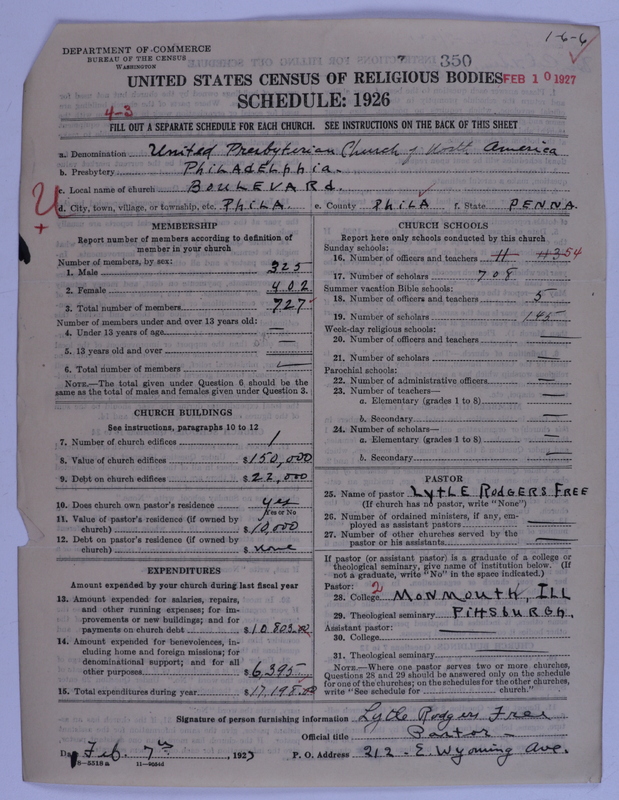 1-6-6
DEPARTMENT OF COMMERCE
BUREAU OF THE CENSUS
WASHINGTON
350
UNITED STATES CENSUS OF RELIGIOUS BODIES FEB 10 1927
SCHEDULE: 1926
4-3
FILL OUT A SEPARATE SCHEDULE FOR EACH CHURCH. SEE INSTRUCTIONS ON THE BACK OF THIS SHEET
a. Denomination United Presbyterian Church of North America
b. Presbytery PHILADELPHIA.
c. Local name of church BOULEVARD.
d. City, town, village, or township, etc. PHILA. e. County PHILA f. State PENNA.
MEMBERSHIP
Report number of members according to definition of
member in your church
Number of members, by sex:
1. Male 325
2. Female 402
3. Total number of members 727
Number of members under and over 13 years old:
4. Under 13 years of age —
5. 13 years old and over —
6. Total number of members —
NOTE.—The total given under Question 6 should be the
same as the total of males and females given under Question 3.
CHURCH BUILDINGS
See instructions, paragraphs 10 to 12
7. Number of church edifices 1
8. Value of church edifices $150,000
9. Debt on church edifices $22,000
10. Does church own pastor's residence yes
Yes or No
11. Value of pastor's residence (if owned by
church) $10,000
12. Debt on pastor's residence (if owned by
church) $none
EXPENDITURES
Amount expended by your church during last fiscal year
13. Amount expended for salaries, repairs,
and other running expenses; for im-
provements or new buildings; and for
payments on church debt $10,803.00
14. Amount expended for benevolences, in-
cluding home and foreign missions; for
denominational support; and for all
other purposes $6,395
15. Total expenditures during year $17,198.00
CHURCH SCHOOLS
Report here only schools conducted by this church
Sunday schools:
16. Number of officers and teachers 54
17. Number of scholars 708
Summer vacation Bible schools:
18. Number of officers and teachers 5
19. Number of scholars 145
Week-day religious schools:
20. Number of officers and teachers —
21. Number of scholars —
Parochial schools:
22. Number of administrative officers —
23. Number of teachers—
a. Elementary (grades 1 to 8) —
b. Secondary —
24. Number of scholars—
a. Elementary (grades 1 to 8) —
b. Secondary —
PASTOR
25. Name of pastor LYTLE RODGERS FREE
(If church has no pastor, write "None")
26. Number of ordained ministers, if any, em-
ployed as assistant pastors —
27. Number of other churches served by the
pastor or his assistants —
If pastor (or assistant pastor) is a graduate of a college or
theological seminary, give name of institution below. (If
not a graduate, write "No" in the space indicated.)
Pastor: 2
28. College MONMOUTH, ILL
29. Theological seminary PITTSBURGH.
Assistant pastor:
30. College —
31. Theological seminary —
NOTE.—Where one pastor serves two or more churches,
Questions 28 and 29 should be answered only on the schedule
for one of the churches; on the schedules for the other churches,
write "See schedule for church."
Signature of person furnishing information Lytle Rodgers Free
Official title Pastor
Feb. 7th, 1927 P. O. Address 212 - E. Wyoming Ave.
8—5518a 11—9554d